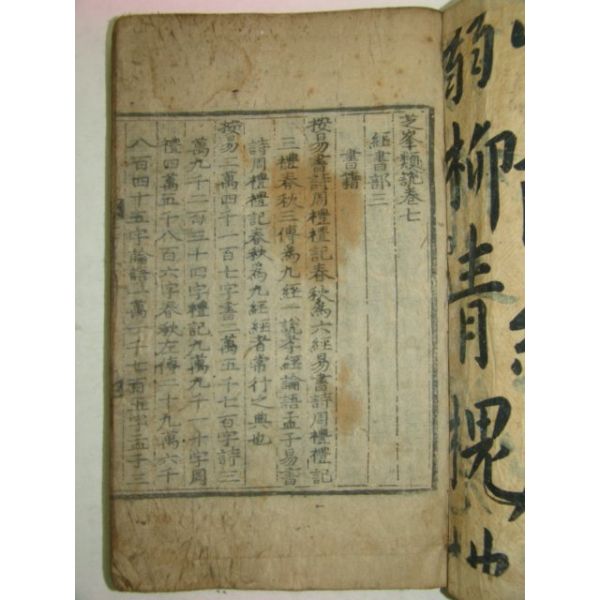 芝峯類說卷七
經書部三
書籍
按易書詩周禮禮記春秋爲六經易書詩周禮禮記
三禮春秋三傳爲九經一說孝經論語孟子易書
詩周禮禮記春秋爲九經經者常行之典也
按易二萬四千一百七字書二萬五千七百字詩三
萬九千二百三十四字禮記九萬九千二十字周
禮四萬五千八百六字春秋左傳二十九萬六千
八百四十五字論語一萬一千七百五字孟子三
弱柳青槐